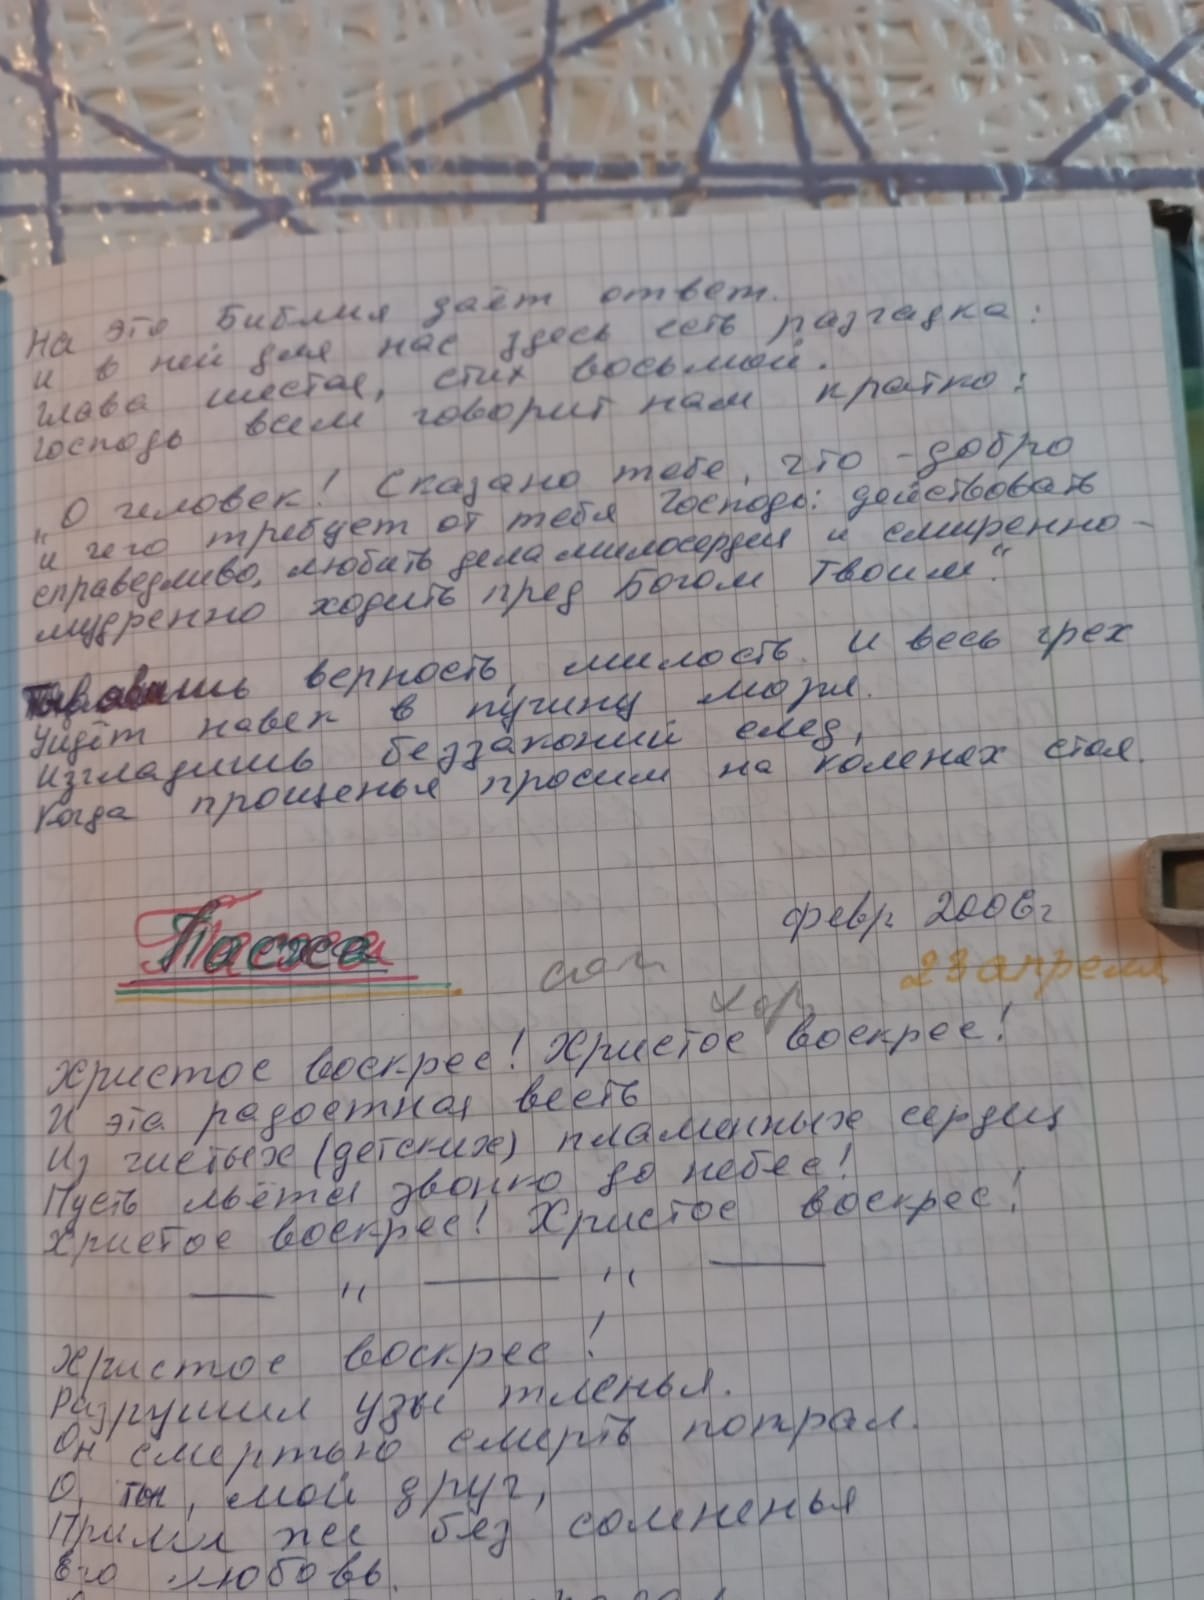 На это Библия даёт ответ.
и в ней для нас здесь есть разгадка:
Глава шестая, стих восьмой.
Господь всем говорит нам кратко:
„О человек! Сказано тебе, что - добро
и чего требует от тебя Господь: действовать
справедливо, любить дела милосердия и смиренно-
мудренно ходить пред Богом Твоим."
верность, милость. И весь грех
Уйдёт навек в пучину моря.
Изгладишь беззаконий след,
Когда прощенья просим на коленах стоя.
Пасха
февр. 2006г
23 апреля
хор
Христос воскрес! Христос воскрес!
И эта радостная весть
Из чистых (детских) пламенных сердец
Пусть льётся звонко до небес!
Христос воскрес! Христос воскрес!
— „ — „ —
Христос воскрес!
Разрушил узы тленья.
Он смертью смерть попрал.
О, ты, мой друг,
Прими же без сомненья
Его любовь.